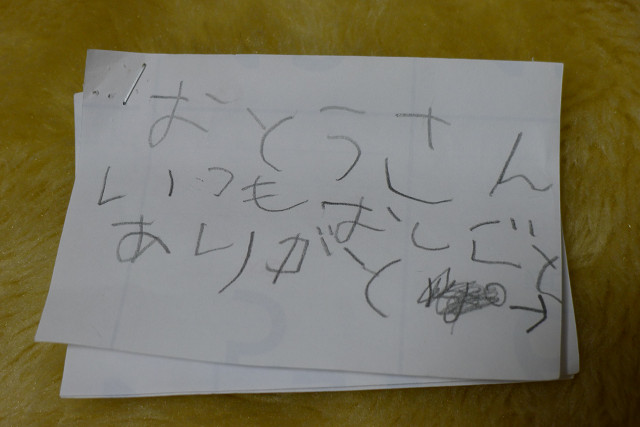 おとうさん
いつもおしごと
ありがと→